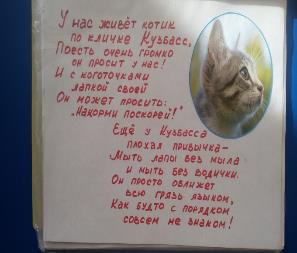 У нас живёт котик
по кличке Кузбасс,
Поесть очень громко
он просит у нас!
И с коготочками
лапкой своей
Он может просить:
„Накорми поскорей!"
Ещё у Кузбасса
плохая привычка–
Мыть лапы без мыла
и мыть без водички.
Он просто оближет
всю грязь языком,
Как будто с порядком
совсем не знаком!